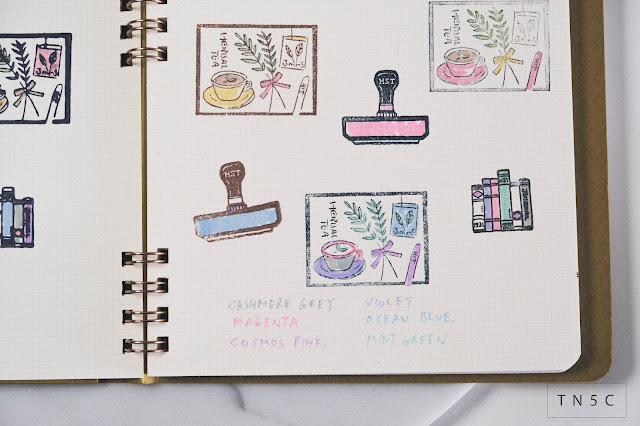 HERBAL
TEA
HERBAL
TEA
MST
MST
HERBAL
TEA
CASHMERE GREY
MAGENTA
COSMOS PINK.
VIOLET
OCEAN BLUE.
MINT GREEN
TN5C